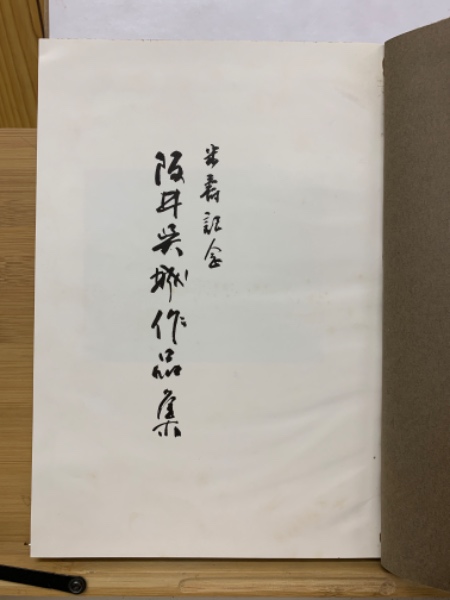 米寿記念
阪井呉城作品集